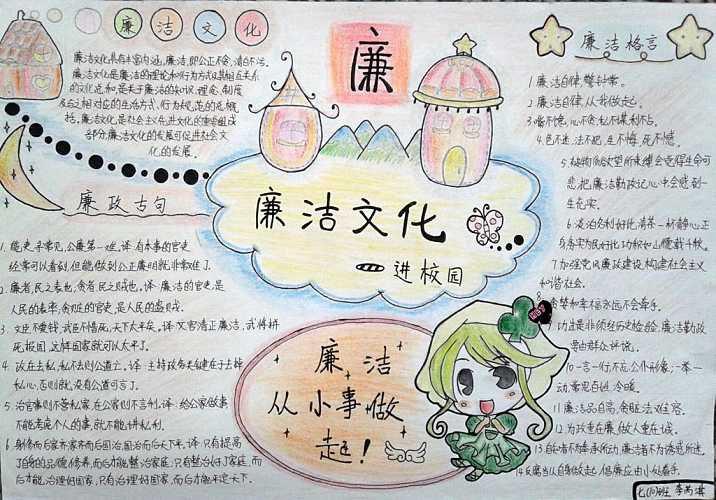 廉洁文化
廉洁文化具有丰富内涵,廉洁,即公正不贪,清白不污。
廉洁文化是廉洁的理论和行为方式及其相互关系
的文化总和,是关于廉洁的知识、理念、制度
及与之相对应的生活方式、行为规范的总概
括。廉洁文化是社会主义先进文化的重要组成
部分,廉洁文化的发展可促进社会文
化的发展。
廉
廉洁格言
1.廉洁自律,警钟常。
2.廉洁自律,从我做起。
3.嘴不馋,心不贪,私不占。
4.色不迷,法不犯,生不悔,死不憾。
悲,把廉洁勤政记心中会感到一
生充实。
6.淡泊名利好比清茶一杯静心正
身,务实为民好比功积如山慷载千秋。
7.加强党风廉政建设,构建社会主义
和谐社会。
贪婪和幸福永远不会牵手。
劳由群众评说。
10.一言一行不忘公仆形象;一举一
动常思百姓冷暖。
11.廉洁品自高,贪脏法难容。
12.为政重在廉,做人重在诚。
14.反腐当从自制做起,倡廉应由小处着手。
廉政古句
1.能吏寻常见,公廉第一难。译:有本事的官吏
经常可以看到,但能做到公正廉明就非常难了。
2.廉者,民之表也,贪者,民之贼也。译:廉洁的官吏,是
人民的表率,贪赃的官吏,是人民的盗贼。
3.文臣不爱钱,武臣不惜死,天下太平矣。译:文官清正廉洁,武将拼
死报国,这样国家就可以太平了。
4.政在去私,私不去则公道亡。译:主持政务关键在于去掉
私心,否则就没有公道可言了。
5.治官事则不营私家,在公家则不言利。译:给公家做事
不能考虑个人的事,就不能讲私利。
6.身修而后家齐,家齐而后国治,国治而后天下平。译:只有提高
了自身的品德修养,而后才能整治家庭,只有整治好了家庭,而
后才能治理好国家,只有治理好国家,而后才能平定天下。
廉洁文化
进校园
廉洁
从小事做
起!